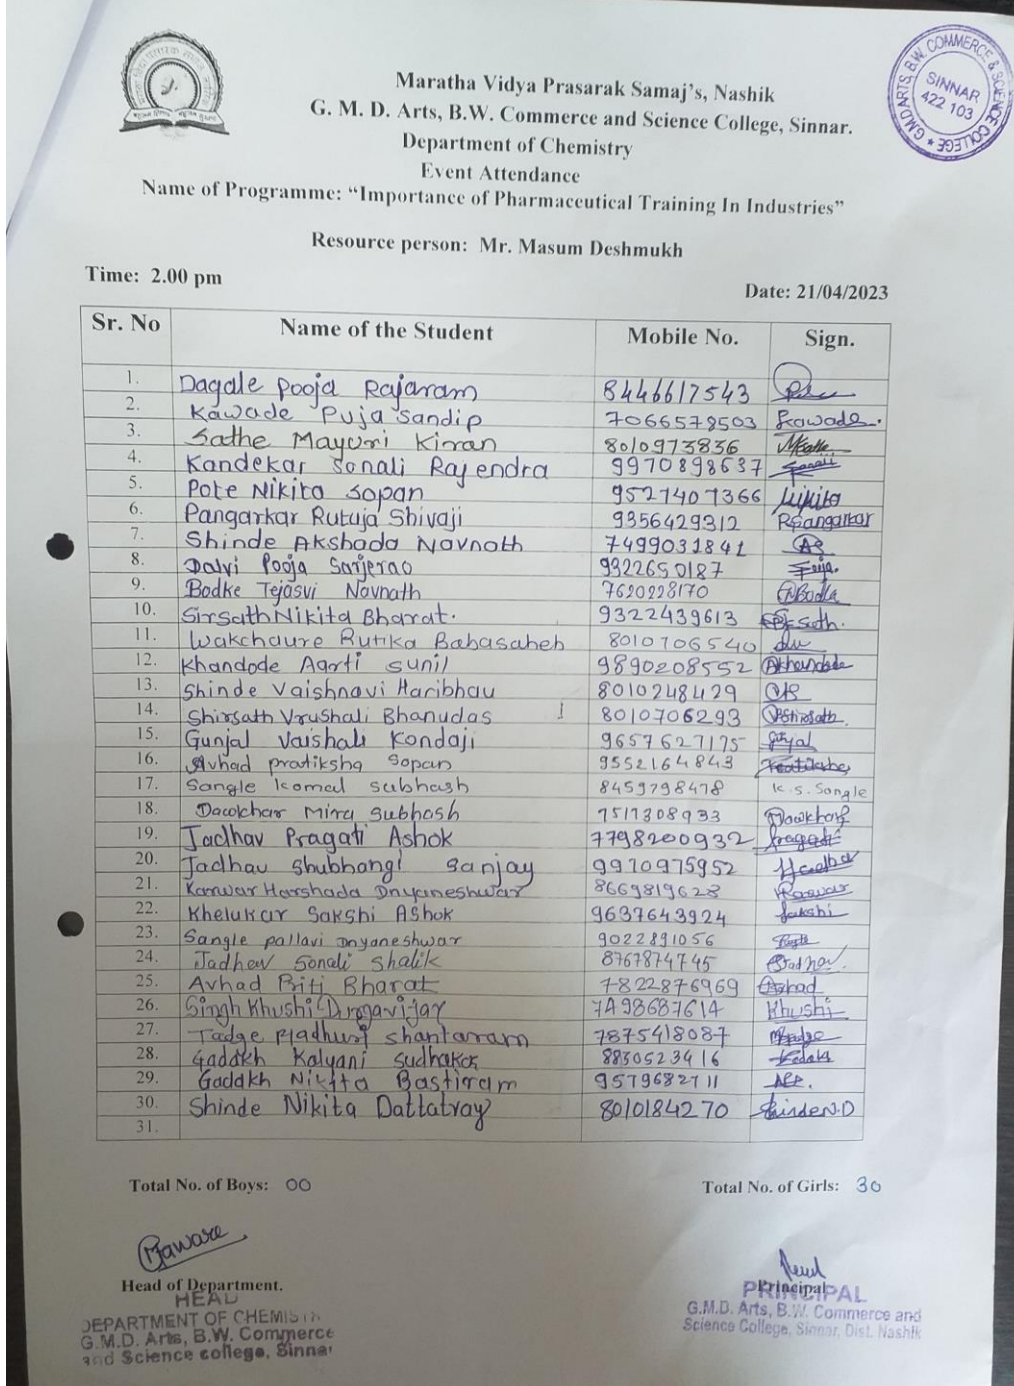 Maratha Vidya Prasarak Samaj's, Nashik
G. M. D. Arts, B.W. Commerce and Science College, Sinnar.
Department of Chemistry
Event Attendance
Name of Programme: “Importance of Pharmaceutical Training In Industries”
Resource person: Mr. Masum Deshmukh
Time: 2.00 pm
Date: 21/04/2023
G.M.D ARTS, B.W. COMMERCE & SCIENCE COLLEGE ★
SINNAR
422 103
Sr. No Name of the Student Mobile No. Sign.
1. Dagale Pooja Rajaram 8446617543
2. Kawade Puja Sandip 7066578503 Kawade.
3. Sathe Mayuri Kiran 8010973836
4. Kandekar Sonali Rajendra 9970898637
5. Pote Nikita Sopan 9527407366 Nikita
6. Pangarkar Rutuja Shivaji 9356429312 RPangarkar
7. Shinde Akshada Navnath 7499031841
8. Dalvi Pooja Sarjerao 9322650187
9. Bodke Tejasvi Navnath 7620228170
10. Sirsath Nikita Bharat. 9322439613
11. Wakchaure Rutika Babasaheb 8010706540
12. Khandode Aarti Sunil 9890208552 AKhandode
13. Shinde Vaishnavi Haribhau 8010248429
14. Shirsath Vrushali Bhanudas 8010706293
15. Gunjal Vaishali Kondaji 9657627175
16. Avhad pratiksha Sopan 9552164843
17. Sangle komal subhash 8459798478 K.S. Sangle
18. Dawkhar Mira Subhash 7517308933
19. Jadhav Pragati Ashok 7798200932 Pragati
20. Jadhav Shubhangi Sanjay 9970975952
21. Kanwar Harshada Dnyaneshwar 8669819628
22. Khelukar Sakshi Ashok 9637643924 Sakshi
23. Sangle pallavi Dnyaneshwar 9022891056
24. Jadhav Sonali Shalik 8767874745
25. Avhad Priti Bharat 7822876969
26. Singh Khushi Durgavijay 7498687614 Khushi
27. Tadge Madhuri Shantaram 7875418087
28. Gadakh Kalyani Sudhakar 8830523416
29. Gadakh Nikita Bastiram 9579682711
30. Shinde Nikita Dattatray 8010184270 Shinde N.D
31.
Total No. of Boys: 00
Total No. of Girls: 30
Head of Department.
HEAD
DEPARTMENT OF CHEMISTRY
G.M.D. Arts, B.W. Commerce
and Science college, Sinnar
Principal
PRINCIPAL
G.M.D. Arts, B.W. Commerce and
Science College, Sinnar, Dist. Nashik